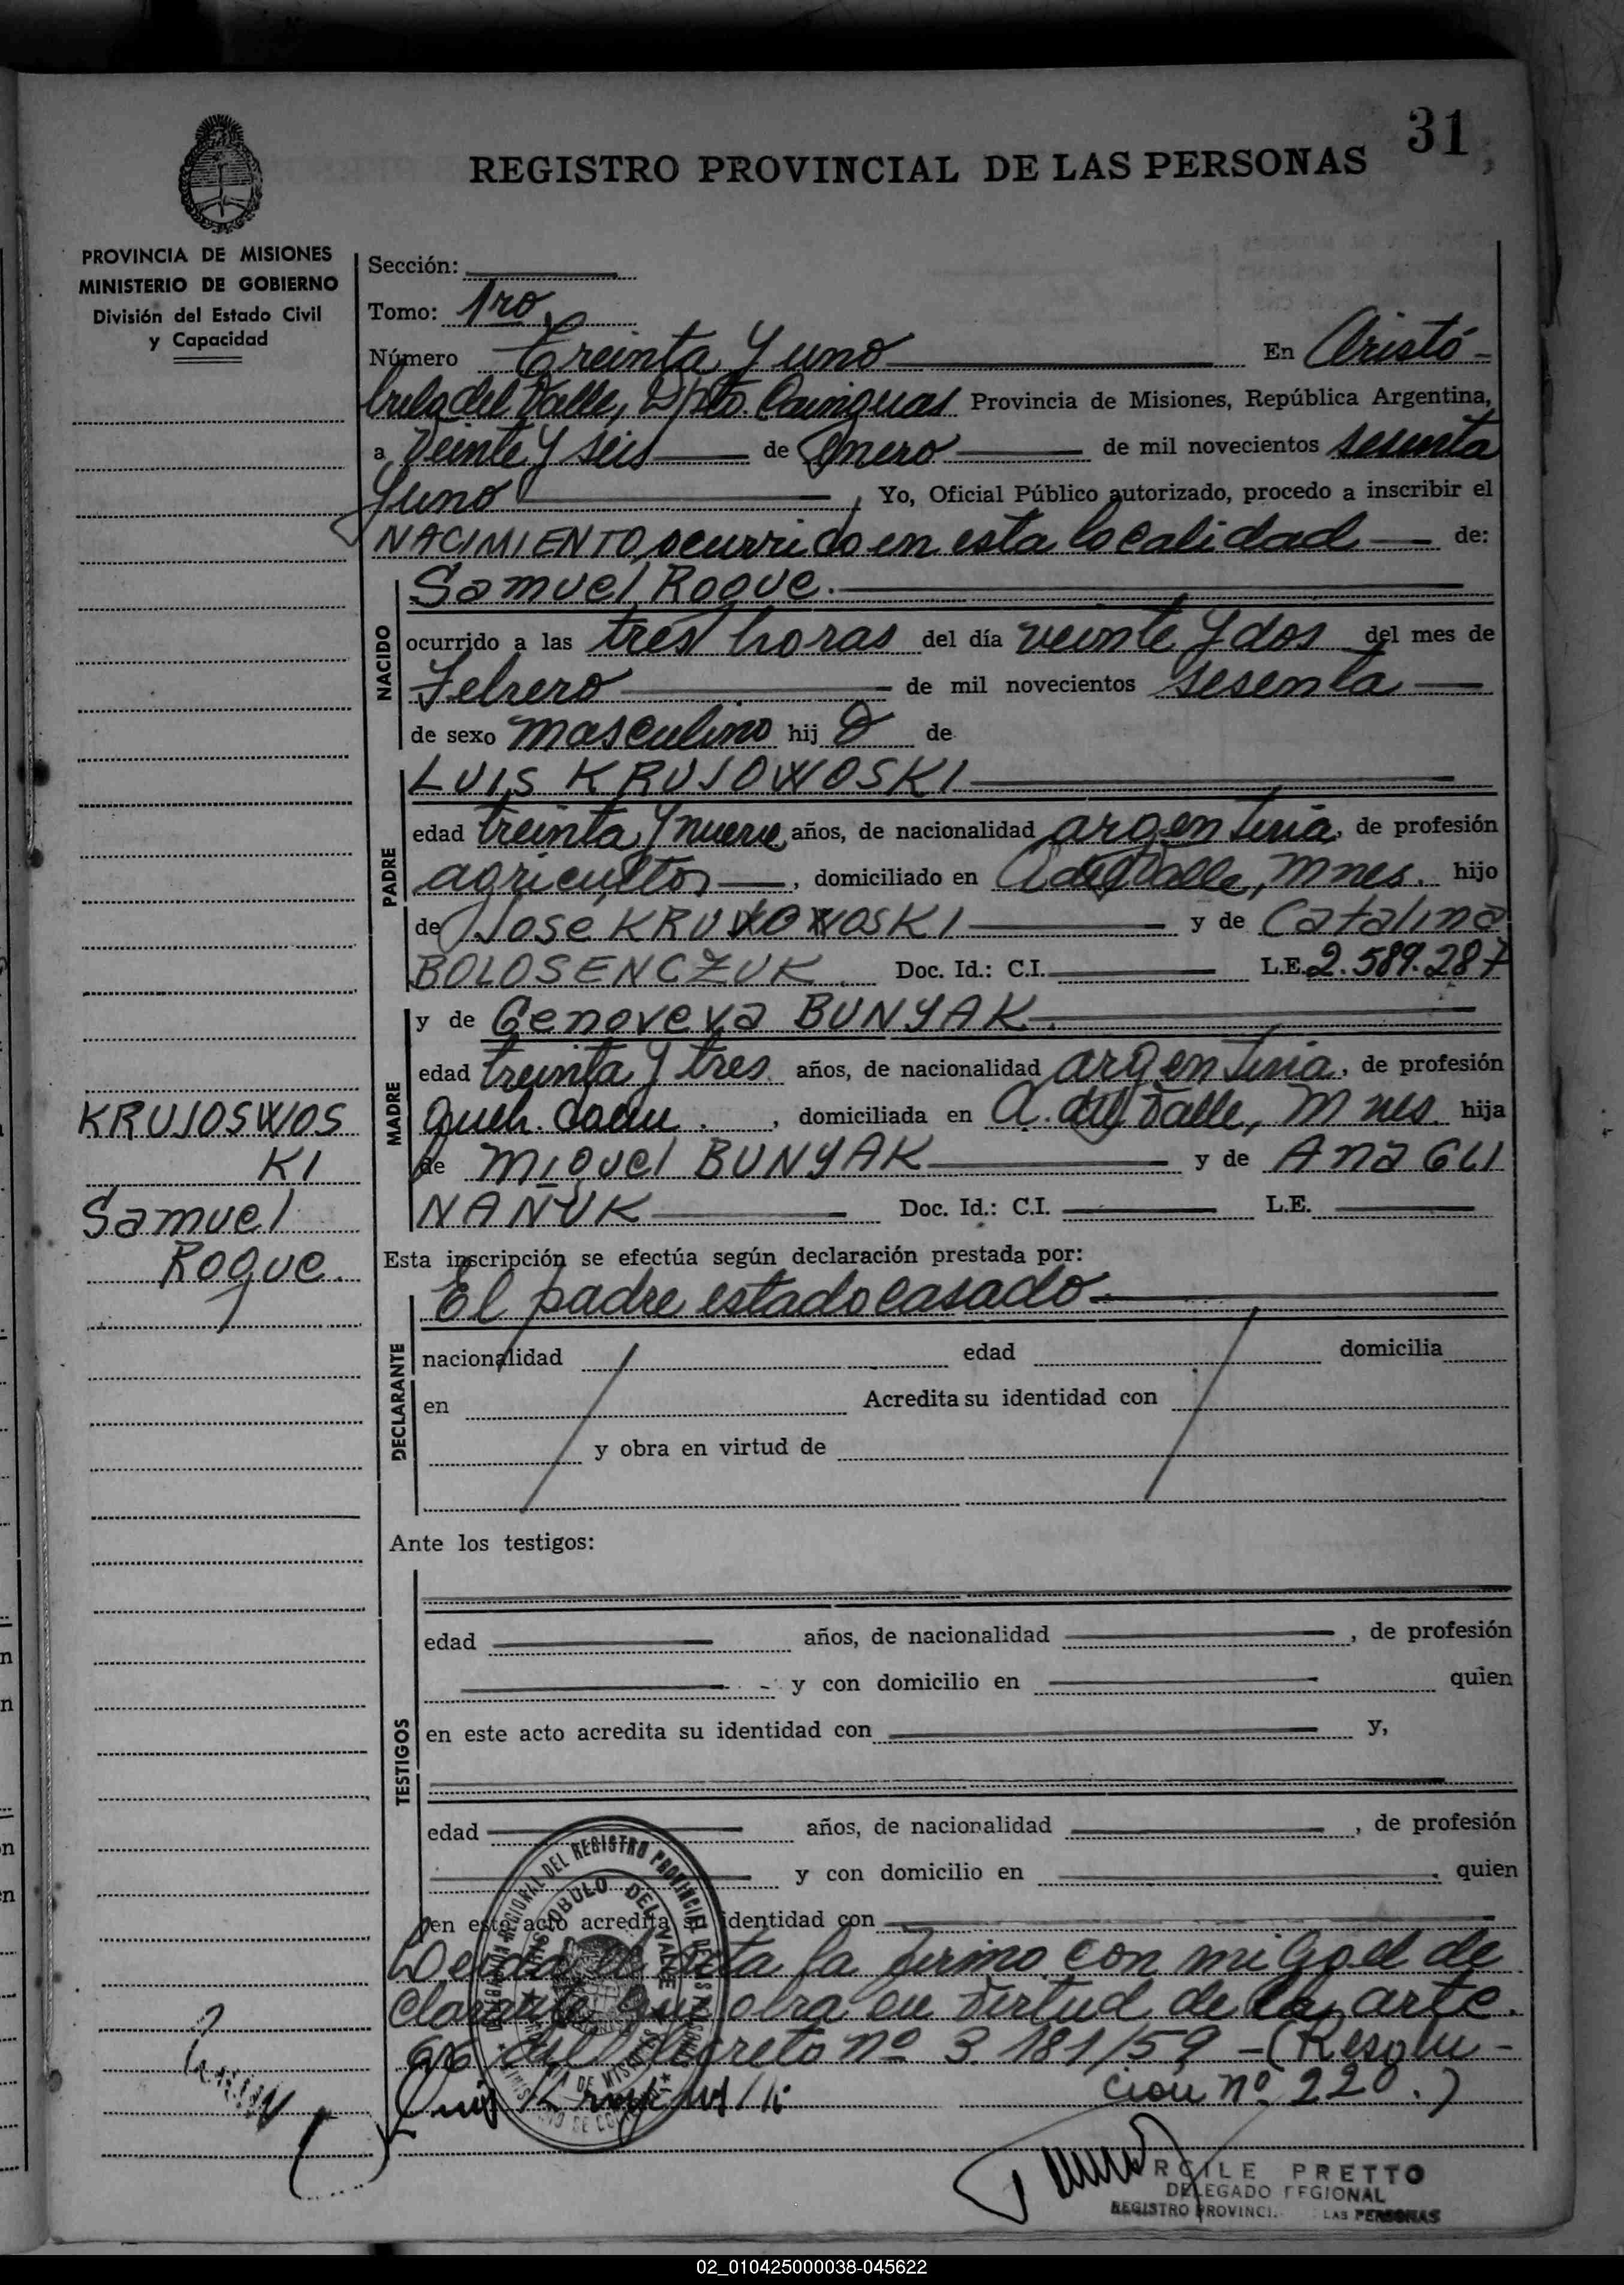 31
REGISTRO PROVINCIAL DE LAS PERSONAS
PROVINCIA DE MISIONES
MINISTERIO DE GOBIERNO
División del Estado Civil
y Capacidad
Sección:
Tomo: 1ro
Número Treinta y uno En Aristó-
bulo del Valle, Dpto. Cainguas Provincia de Misiones, República Argentina,
a Veinte y seis de Enero de mil novecientos sesenta
y uno , Yo, Oficial Público autorizado, procedo a inscribir el
NACIMIENTO, ocurrido en esta localidad de:
NACIDO
Samuel Roque.
ocurrido a las tres horas del día veinte y dos del mes de
Febrero de mil novecientos sesenta
de sexo masculino hij o de
PADRE
LUIS KRUJOWOSKI
edad treinta y nueve años, de nacionalidad argentina, de profesión
agricultor , domiciliado en A del Valle, Mnes. hijo
de Jose KRUJOWOSKI y de Catalina
BOLOSENCZUK Doc. Id.: C.I. L.E. 2.589.287
MADRE
y de Genoveva BUNYAK.
edad treinta y tres años, de nacionalidad argentina, de profesión
queh. dom. , domiciliada en A. del Valle, Mnes. hija
de Miguel BUNYAK y de Ana GU
NAÑUK Doc. Id.: C.I. L.E.
KRUJOSWOS
KI
Samuel
Roque.
Esta inscripción se efectúa según declaración prestada por:
DECLARANTE
El padre estado casado.
nacionalidad edad domicilia
en Acredita su identidad con
y obra en virtud de
Ante los testigos:
TESTIGOS
edad años, de nacionalidad , de profesión
y con domicilio en quien
en este acto acredita su identidad con y,
edad años, de nacionalidad , de profesión
y con domicilio en quien
en este acto acredita su identidad con
Leida el acta la firmo con migo el de
clarante que obra en virtud de la arte.
del Decreto nº 3.181/59 - (Resolu-
cion nº 220.)
Luis
DELEGACIÓN REGIONAL DEL REGISTRO PROVINCIAL DE LAS PERSONAS
ARISTOBULO DEL VALLE
PROVINCIA DE MISIONES
MINISTERIO DE GOBIERNO
RCILE PRETTO
DELEGADO REGIONAL
REGISTRO PROVINCI. LAS PERSONAS
02_010425000038-045622